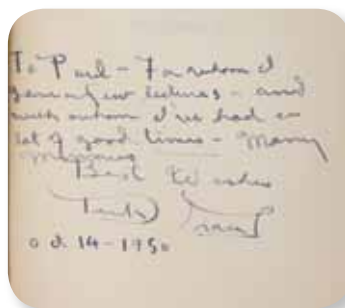 To Paul - For whom I
gave a few lectures - and
with whom I've had a
lot of good times - Many
Memories
Best Wishes
Oct. 14 - 1950